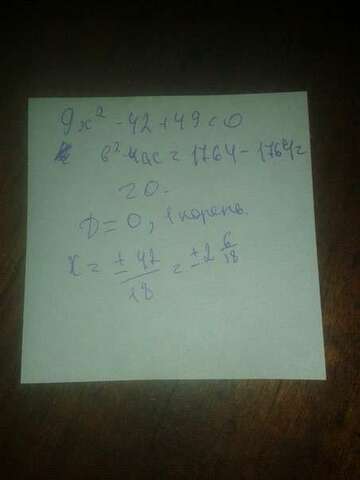 9x² - 42 + 49 = 0
b² 4ac = 1764 - 1764 =
= 0.
D = 0, 1 корень.
x = ± 42/18 = ± 2 6/18